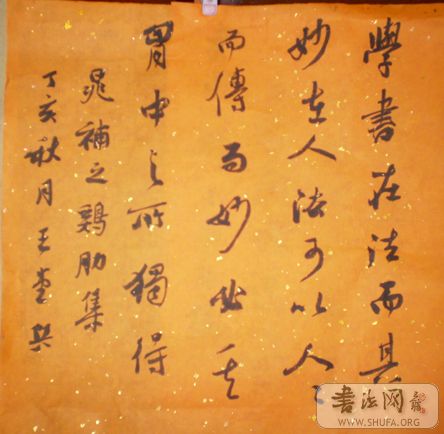 學書在法而其
妙在人法可以人人
而傳而妙必其
胷中之所獨得
晁補之鷄肋集
丁亥秋月王
書法网
WWW.SHUFA.ORG